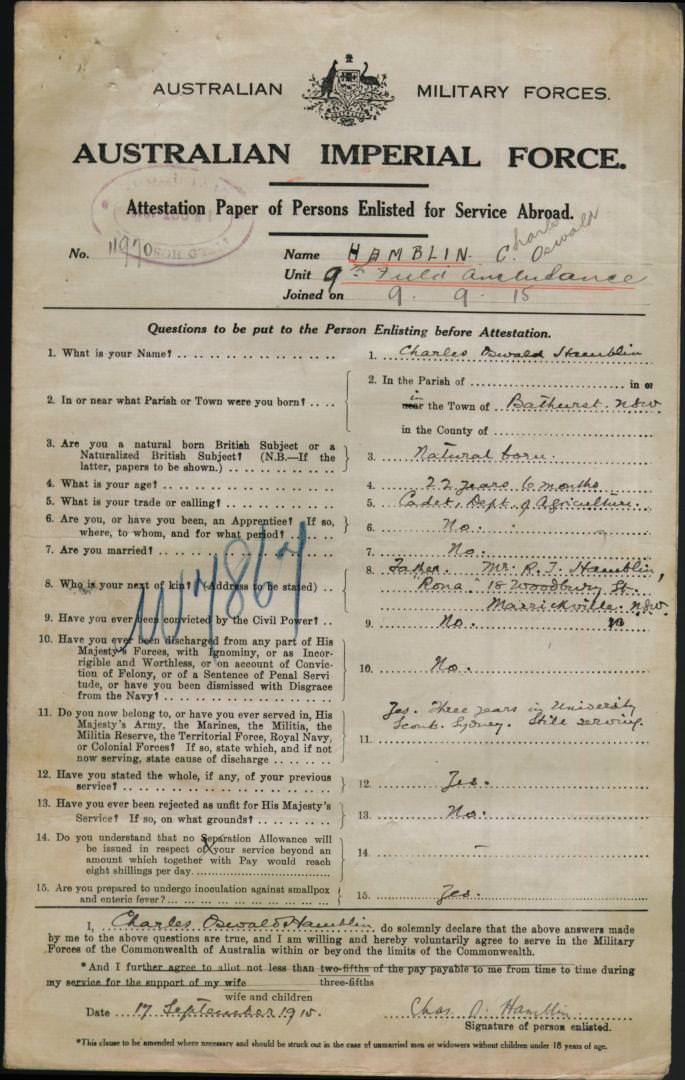 AUSTRALIAN MILITARY FORCES.
AUSTRALIAN IMPERIAL FORCE.
Attestation Paper of Persons Enlisted for Service Abroad.
No. 11970 Name HAMBLIN. C. Charles Oswald
Unit 9th Field Ambulance
Joined on 9. 9. 15
Questions to be put to the Person Enlisting before Attestation.
1. What is your Name? 1. Charles Oswald Hamblin
2. In or near what Parish or Town were you born? 2. In the Parish of in or
in near the Town of Bathurst. NSW.
in the County of
3. Are you a natural born British Subject or a
Naturalized British Subject? (N.B.—If the
latter, papers to be shown.) 3. Natural born.
4. What is your age? 4. 22 years 6 months
5. What is your trade or calling? 5. Cadet, Dept. of Agriculture.
6. Are you, or have you been, an Apprentice? If so,
where, to whom, and for what period? 6. No.
7. Are you married? 7. No.
8. Who is your next of kin? (Address to be stated) 8. Father. Mr. R. T. Hamblin,
"Rona" 18 Woodbury St.
Marrickville. NSW.
9. Have you ever been convicted by the Civil Power? 9. No.
10. Have you ever been discharged from any part of His
Majesty's Forces, with Ignominy, or as Incor-
rigible and Worthless, or on account of Convic-
tion of Felony, or of a Sentence of Penal Servi
tude, or have you been dismissed with Disgrace
from the Navy? 10. No.
11. Do you now belong to, or have you ever served in, His
Majesty's Army, the Marines, the Militia, the
Militia Reserve, the Territorial Force, Royal Navy,
or Colonial Forces? If so, state which, and if not
now serving, state cause of discharge 11. Yes. Three years in University
Scouts. Sydney. Still serving.
12. Have you stated the whole, if any, of your previous
service? 12. Yes.
13. Have you ever been rejected as unfit for His Majesty's
Service? If so, on what grounds? 13. No.
14. Do you understand that no Separation Allowance will
be issued in respect of your service beyond an
amount which together with Pay would reach
eight shillings per day. 14. –
15. Are you prepared to undergo inoculation against smallpox
and enteric fever? 15. Yes.
I, Charles Oswald Hamblin do solemnly declare that the above answers made
by me to the above questions are true, and I am willing and hereby voluntarily agree to serve in the Military
Forces of the Commonwealth of Australia within or beyond the limits of the Commonwealth.
*And I further agree to allot not less than two-fifths of the pay payable to me from time to time during
my service for the support of my wife three-fifths
wife and children
Date 17 September 1915. Chas O. Hamblin
Signature of person enlisted.
*This clause to be amended where necessary and should be struck out in the case of unmarried men or widowers without children under 18 years of age.